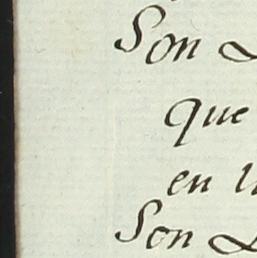 Son
que
en
Son